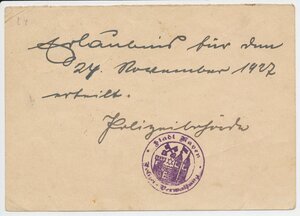 Erlaubnis für den
24. November 1927
erteilt.
Polizeibehörde
Stadt Mayen
Polizei-Verwaltung